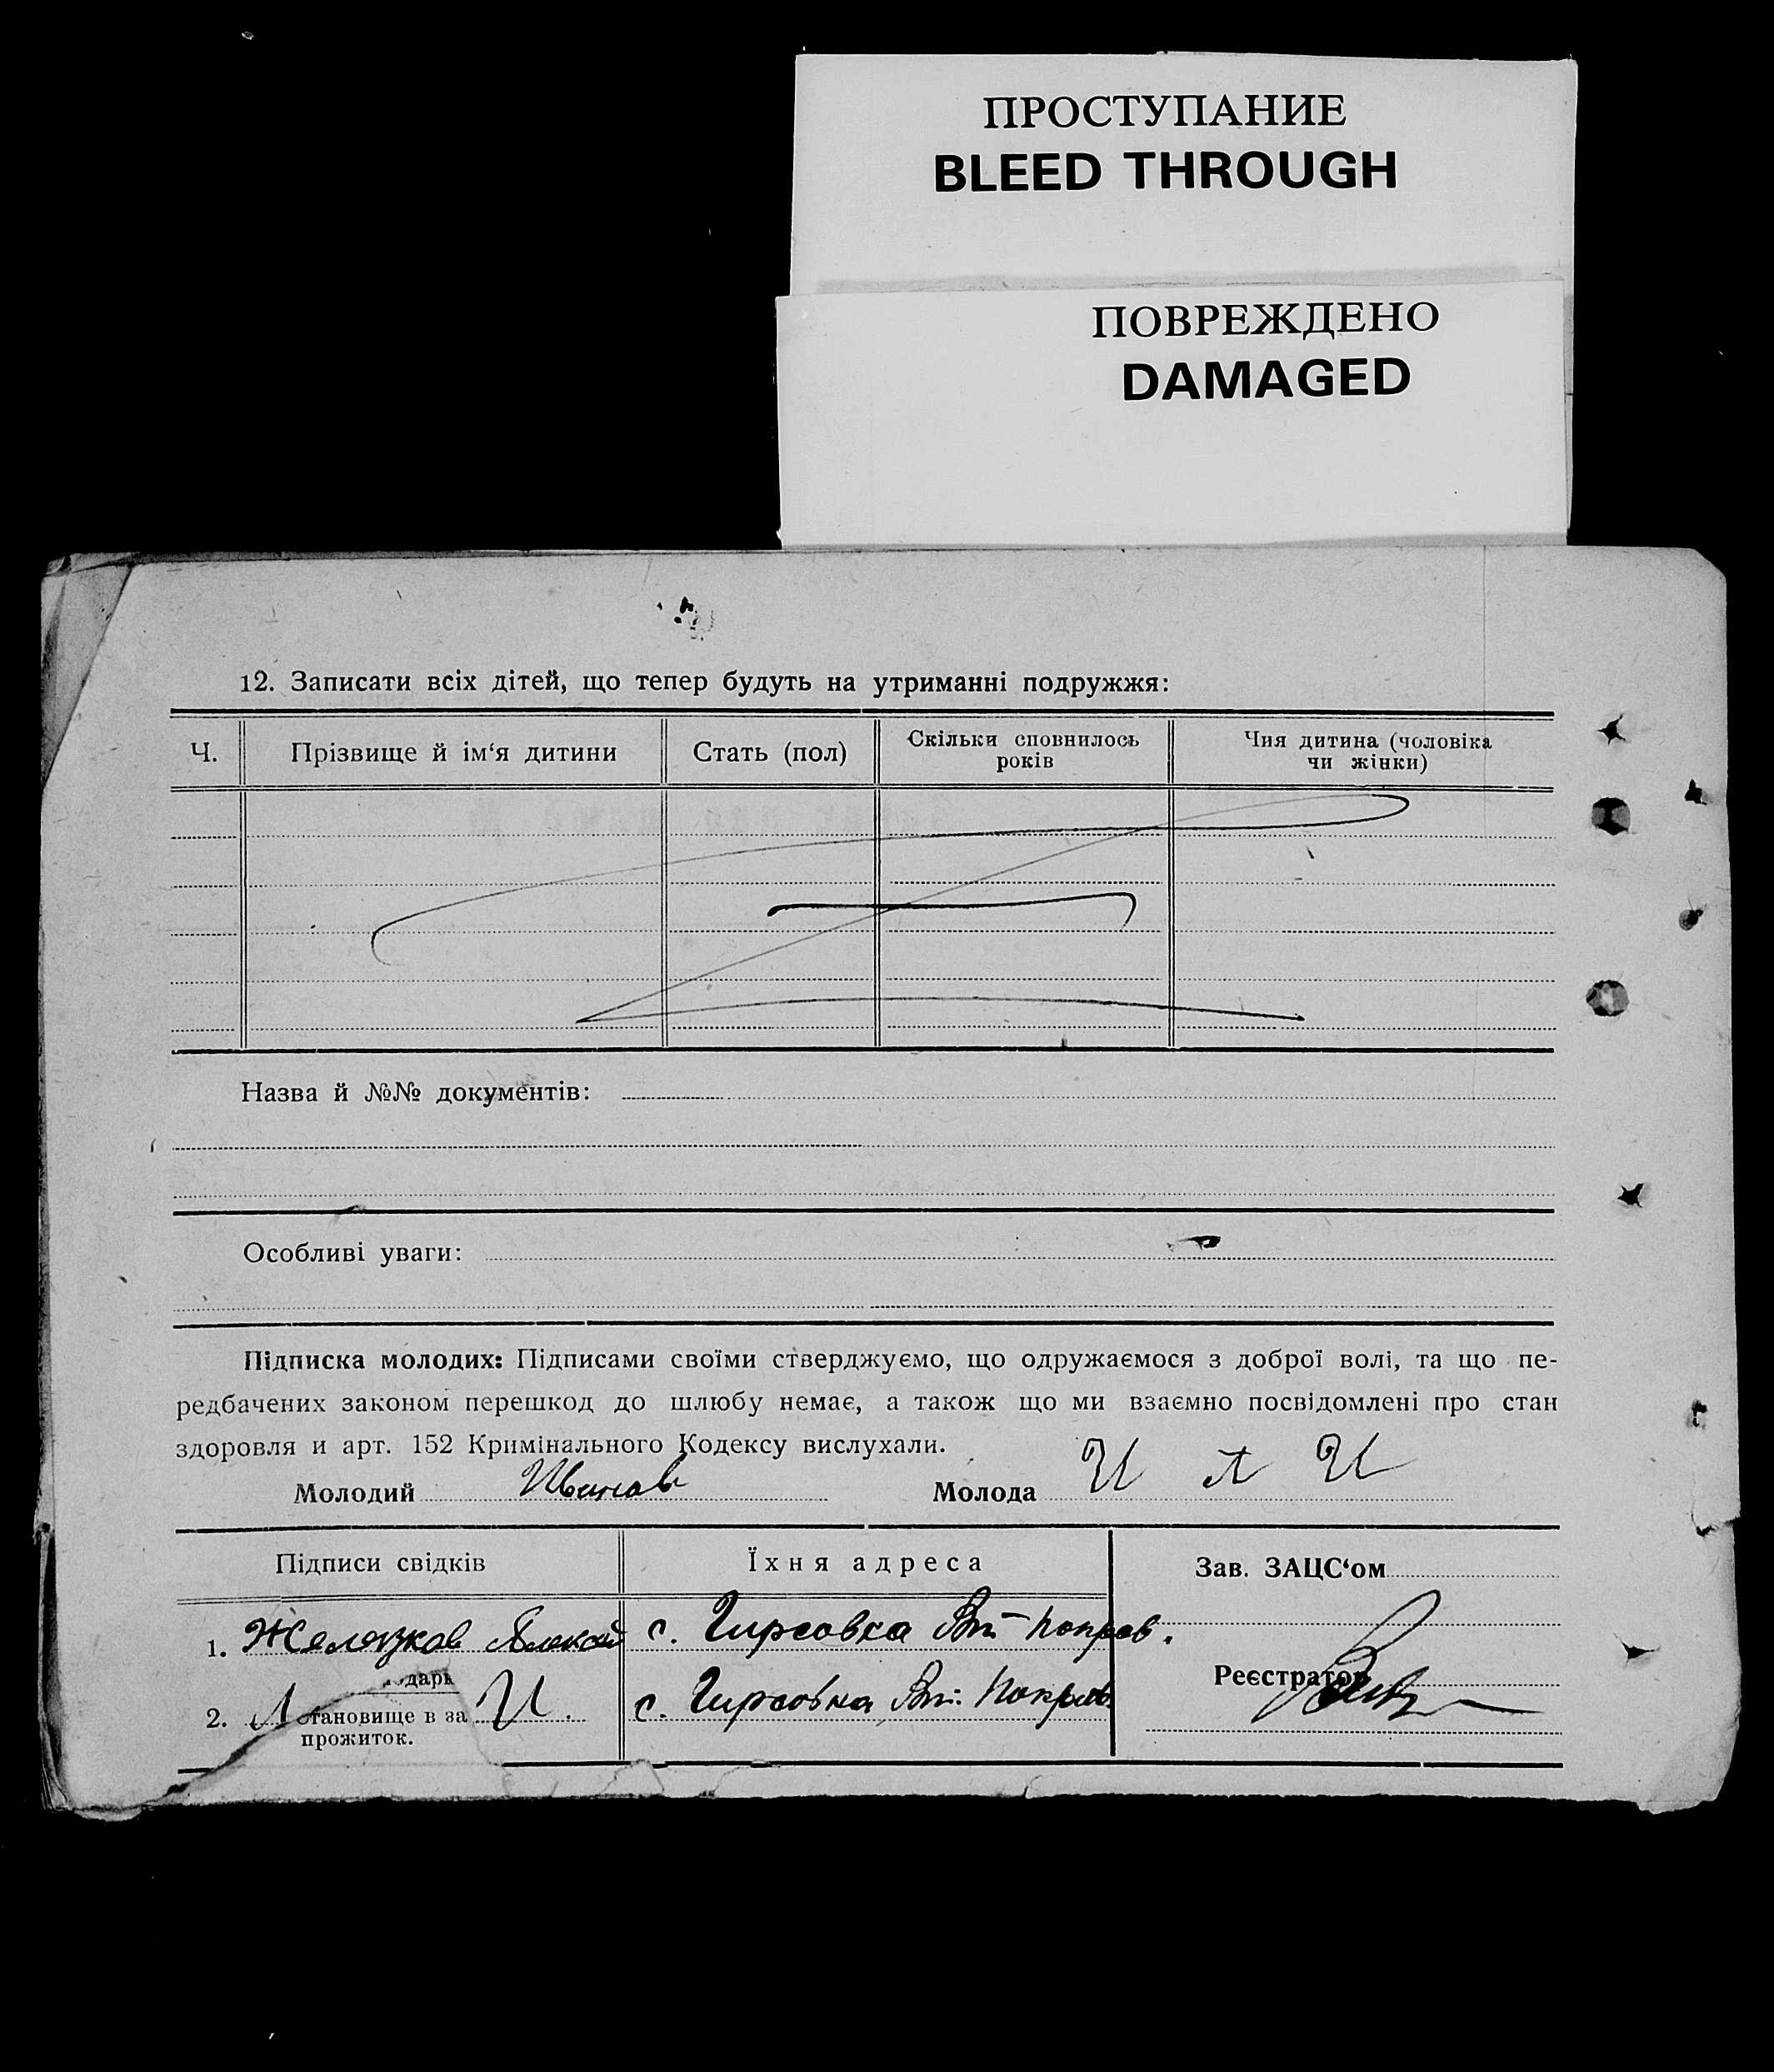 ПРОСТУПАНИЕ
BLEED THROUGH
ПОВРЕЖДЕНО
DAMAGED
12. Записати всіх дітей, що тепер будуть на утриманні подружжя:
Ч. Прізвище й ім‘я дитини Стать (пол) Скільки сповнилось років Чия дитина (чоловіка чи жінки)
Назва й №№ документів:
Особливі уваги:
Підписка молодих: Підписами своїми стверджуємо, що одружаємося з доброї волі, та що пе-
редбачених законом перешкод до шлюбу немає, а також що ми взаємно посвідомлені про стан
здоровля и арт. 152 Кримінального Кодексу вислухали.
Молодий Иванов Молода И Л И
Підписи свідків Їхня адреса Зав. ЗАЦС‘ом
1. Желязков Алексей с. Гирсовка Вт Покров.
дарь
Реєстратор
2. Л становище в за И. с. Гирсовка Вт. Покров
прожиток.